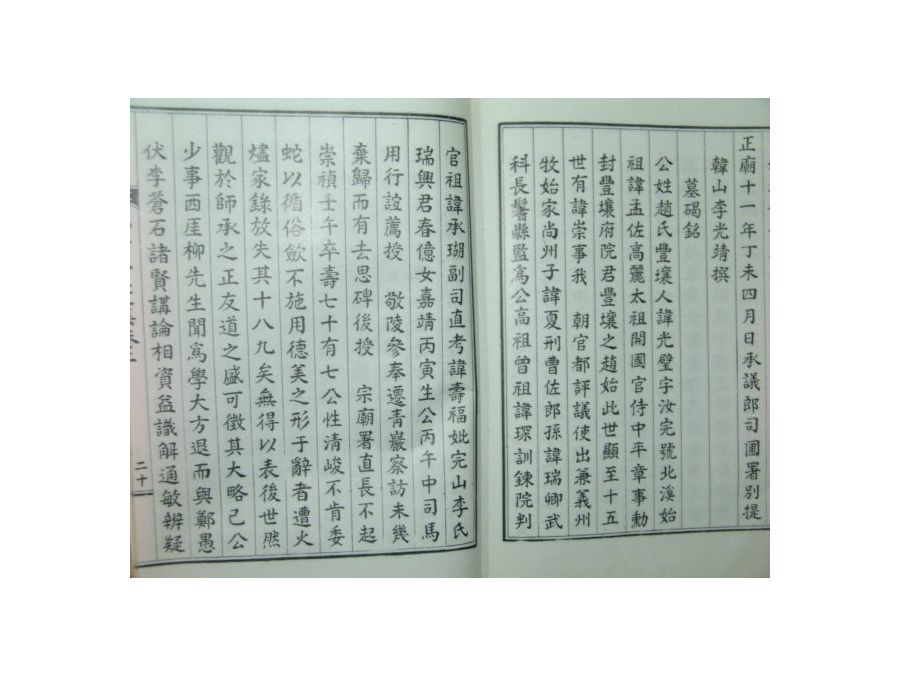 正廟十一年丁未四月日承議郎司圃署別提
韓山李光靖撰
墓碣銘
公姓趙氏豐壤人諱光璧字汝完號北溪始
祖諱孟佐高麗太祖開國官侍中平章事勳
封豐壤府院君豐壤之趙始此世顯至十五
世有諱崇事我 朝官都評議使出兼義州
牧始家尚州子諱夏刑曹佐郎孫諱瑞卿武
科長鬐縣監寔公高祖曾祖諱琛訓鍊院判
官祖諱承瑚副司直考諱壽福妣完山李氏
瑞興君春億女嘉靖丙寅生公丙午中司馬
用行誼薦授 敬陵參奉遷青巖察訪未幾
棄歸而有去思碑後授 宗廟署直長不起
崇禎壬午卒壽七十有七公性清峻不肯委
蛇以循俗斂不施用德美之形于辭者遭火
燼家錄放失其十八九矣無得以表後世然
觀於師承之正友道之盛可徵其大略已公
少事西厓柳先生聞寫學大方退而與鄭愚
伏李蒼石諸賢講論相資益識解通敏辨疑
二十